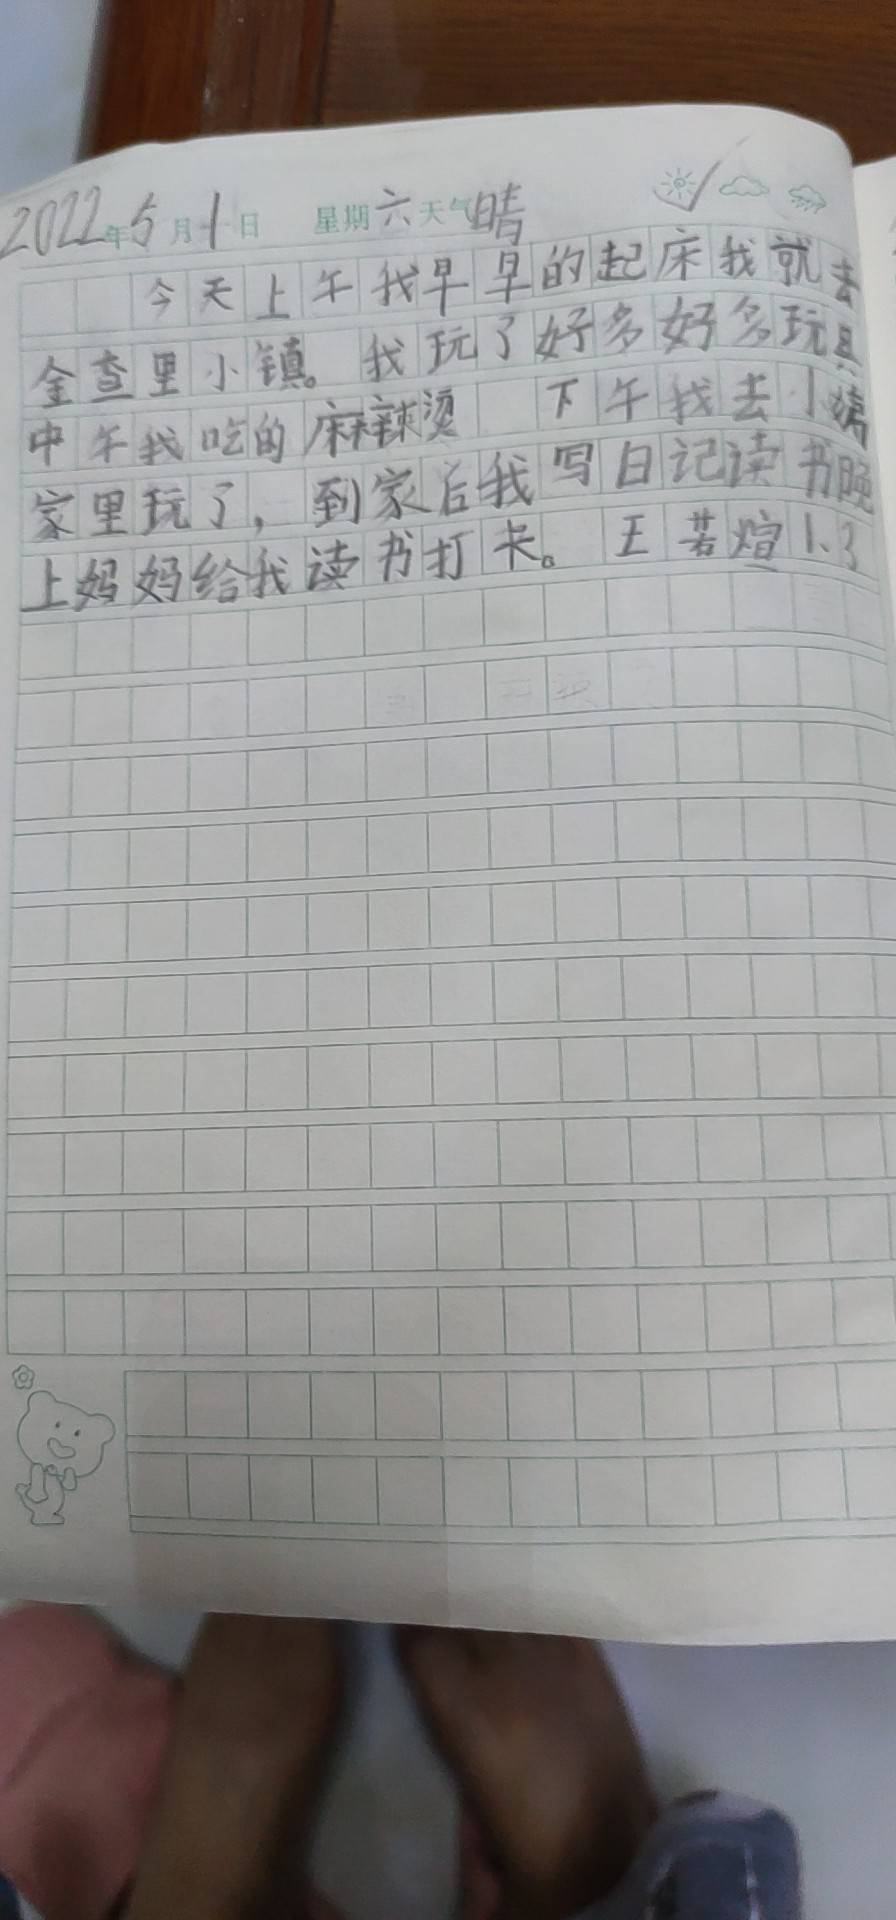 2022年5月1日 星期六天气晴
今天上午我早早的起床我就去
金查里小镇。我玩了好多好多玩具
中午我吃的麻辣烫 下午我去小姨
家里玩了，到家后我写日记读书晚
上妈妈给我读书打卡。王若煊1.3